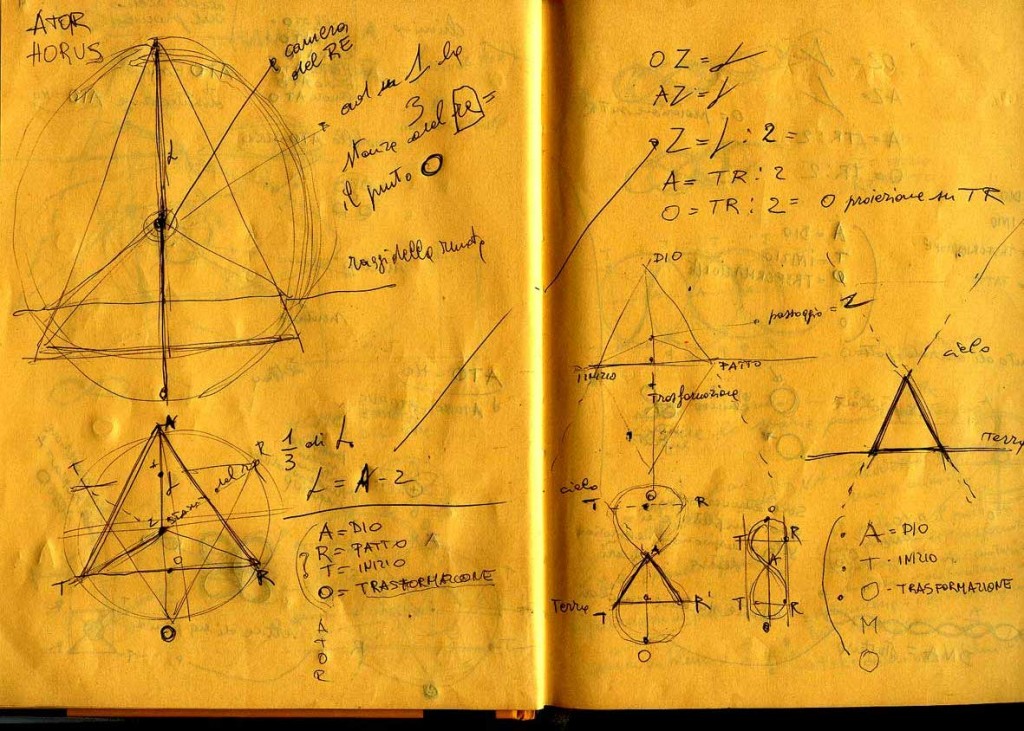 ATOR
HORUS
camera
del RE
3
stanze del re =
il punto O
L
raggi della ruota
O
A
1/3 di L
L = A - Z
T
L
Z
stanza del re
O
T
R
O
A = DIO
R = PATTO
T = INIZIO
O = TRASFORMAZIONE
A
T
O
R
OZ = L
AZ = L
Z = L : 2 =
A = TR : 2
O = TR : 2 = O proiezione su TR
DIO
passaggio = Z
INIZIO
PATTO
Trasformazione
cielo
Terra
cielo
T
O
R
A
Terra
T
R'
O
O
T
R
A
T
R
O
A = DIO
T - INIZIO
O - TRASFORMAZIONE
M
O